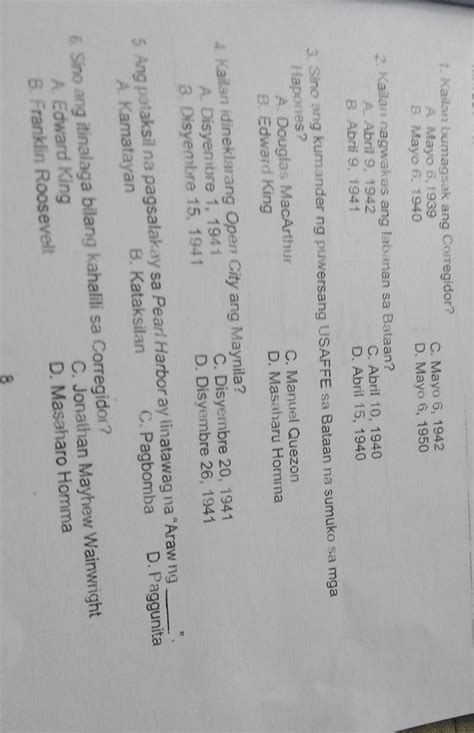 1. Kailan bumagsak ang Corregidor?
A. Mayo 6, 1939 C. Mayo 6, 1942
B. Mayo 6, 1940 D. Mayo 6, 1950
2. Kailan nagwakas ang labanan sa Bataan?
A. Abril 9, 1942 C. Abril 10, 1940
B. Abril 9, 1941 D. Abril 15, 1940
3. Sino ang kumander ng puwersang USAFFE sa Bataan na sumuko sa mga
Hapones?
A. Douglas MacArthur C. Manuel Quezon
B. Edward King D. Masaharu Homma
4. Kailan idineklarang Open City ang Maynila?
A. Disyembre 1, 1941 C. Disyembre 20, 1941
B. Disyembre 15, 1941 D. Disyembre 26, 1941
5. Ang pataksil na pagsalakay sa Pearl Harbor ay tinatawag na "Araw ng ______".
A. Kamatayan B. Kataksilan C. Pagbomba D. Paggunita
6. Sino ang itinalaga bilang kahalili sa Corregidor?
A. Edward King C. Jonathan Mayhew Wainwright
B. Franklin Roosevelt D. Masaharo Homma
8